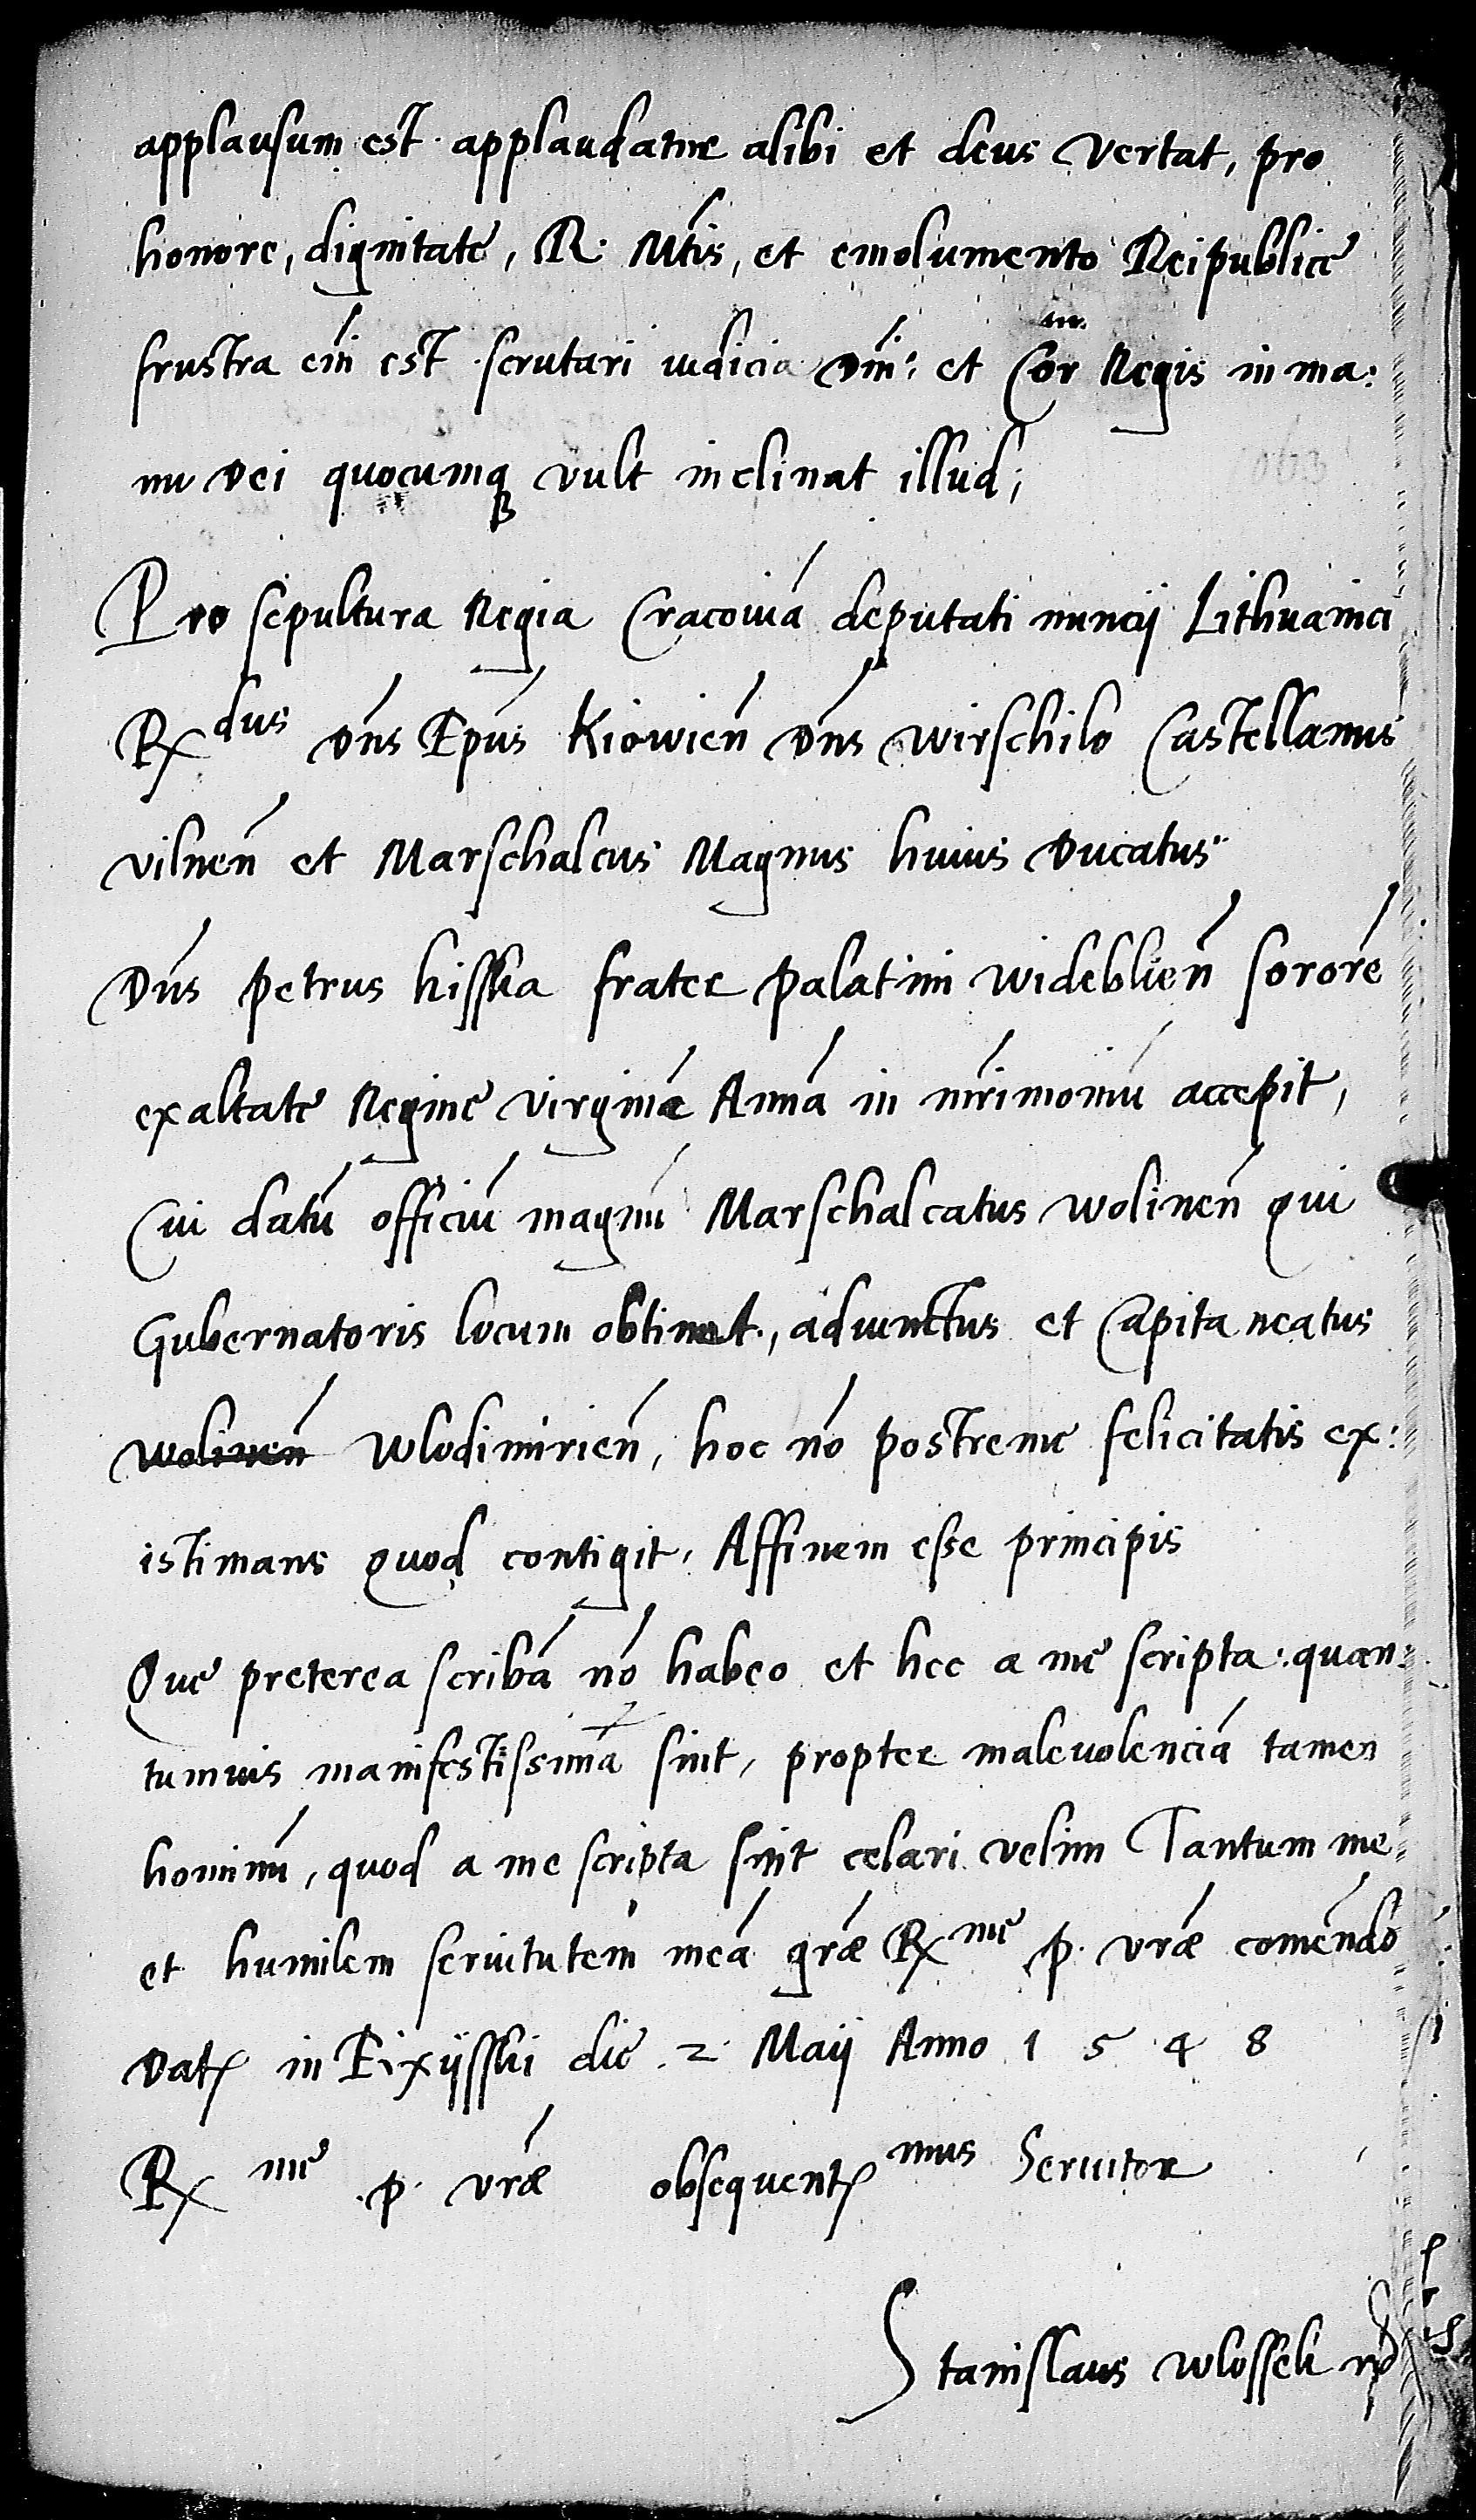 applausum est applaudatur alibi et deus vertat, pro
honore, dignitate, R. Mtis, et emolumento Reipublice
frustra em̄ est scrutari iudicia Dni: et Cor Regis in ma:
nu Dei quocumqȝ vult inclinat illud;
Pro sepultura Regia Cracoviā deputati nuncij Lithuanici
Rdus Dns Epus Kiowień Dns wirschilo Castellanus
vilneń et Marschalcus Magnus huius Ducatus
Dns petrus kisska frater palatini widebleń sororē
exaltate Regine virginē Annā in mrimoniū accepit,
Cui datū officiū magnū Marschalcatus wolineń qui
Gubernatoris locum obtinet, adiunctus et Capitaneatus
wolineń Wlodimirień, hoc nō postreme felicitatis ex:
istimans quod contigit, Affinem esse principis
Que preterea scribā nō habeo et hec a me scripta: quan:
tumvis manifestissima sint, propter malevolenciā tamen
hominū, quod a me scripta sint celari velim Tantum me
et humilem servitutem meā grae Rme p. vrae comendo
Dat in Eixijsski die 2 Maij Anno 1548
Rme p. vrae obsequentmus Servitor
Stanislaus wlossek